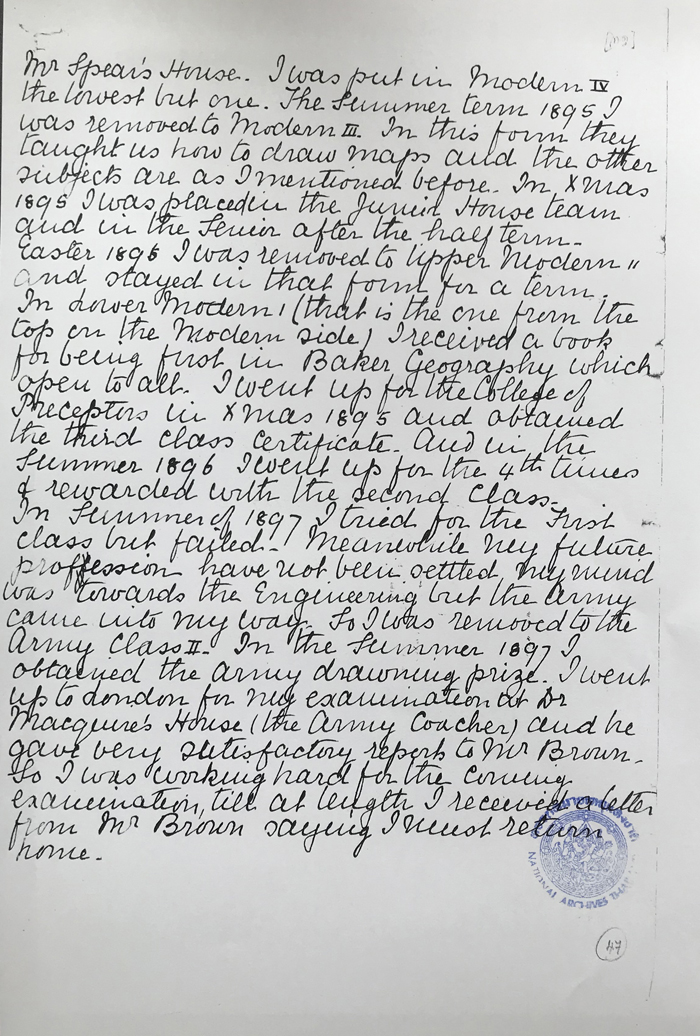 Mr Spear's House. I was put in Modern IV
the lowest but one. The Summer term 1895 I
was removed to Modern III. In this form they
taught us how to draw maps and the other
subjects are as I mentioned before. In Xmas
1895 I was placed in the Junior House team
and in the Senior after the half term.
Easter 1896 I was removed to Upper Modern "
and stayed in that form for a term.
In Lower Modern 1 (that is the one from the
top on the Modern side) I received a book
for being first in Baker Geography which
open to all. I went up for the College of
Preceptors in Xmas 1895 and obtained
the third class certificate. And in the
Summer 1896 I went up for the 4th times
& rewarded with the second class.
In Summer of 1897 I tried for the First
class but failed. Meanwhile my future
proffession have not been settled, my mind
was towards the Engineering but the Army
came into my way. So I was removed to the
Army Class II. In the Summer 1897 I
obtained the army drawning prize. I went
up to London for my examination at Dr
Macquire's House (the Army Coacher) and he
gave very satisfactory reports to Mr Brown.
So I was working hard for the coming
examination, till at length I received a letter
from Mr Brown saying I must return
home.
NATIONAL ARCHIVES THAILAND
47